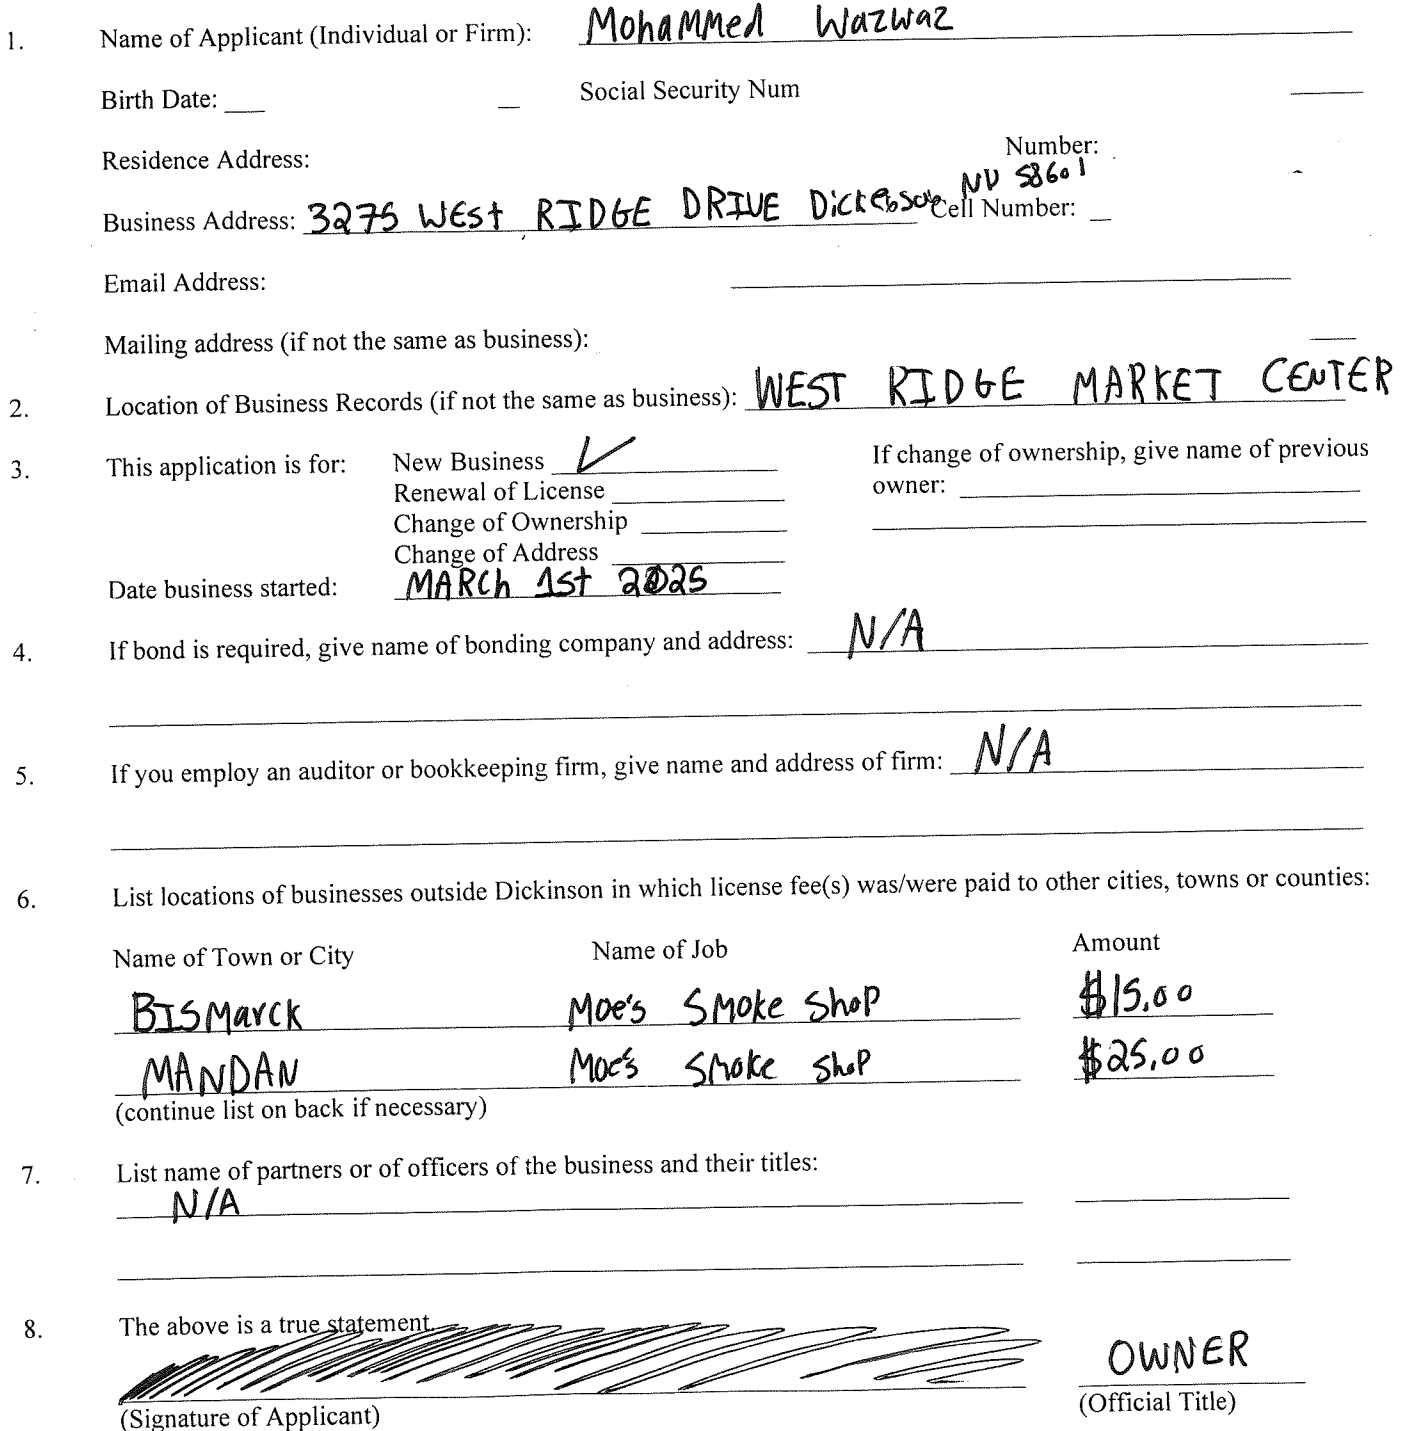 1. Name of Applicant (Individual or Firm): MohaMMed Wazwaz
Birth Date: ___ _ Social Security Num ____
Residence Address: Number:
ND 58601
Business Address: 3275 WEst RIDGE DRIVE Dickenson Cell Number: _
Email Address: ____
Mailing address (if not the same as business): ___
2. Location of Business Records (if not the same as business): WEST RIDGE MARKET CENTER
3. This application is for: New Business ✓ If change of ownership, give name of previous
Renewal of License ____ owner: ____
Change of Ownership ____
Change of Address ____
Date business started: MARCh 1st 2025
4. If bond is required, give name of bonding company and address: N/A
5. If you employ an auditor or bookkeeping firm, give name and address of firm: N/A
6. List locations of businesses outside Dickinson in which license fee(s) was/were paid to other cities, towns or counties:
Name of Town or City Name of Job Amount
BISMarck Moe's Smoke Shop $15.00
MANDAN Moe's Smoke Shop $25.00
(continue list on back if necessary)
7. List name of partners or of officers of the business and their titles:
N/A
8. The above is a true statement.
OWNER
(Signature of Applicant) (Official Title)